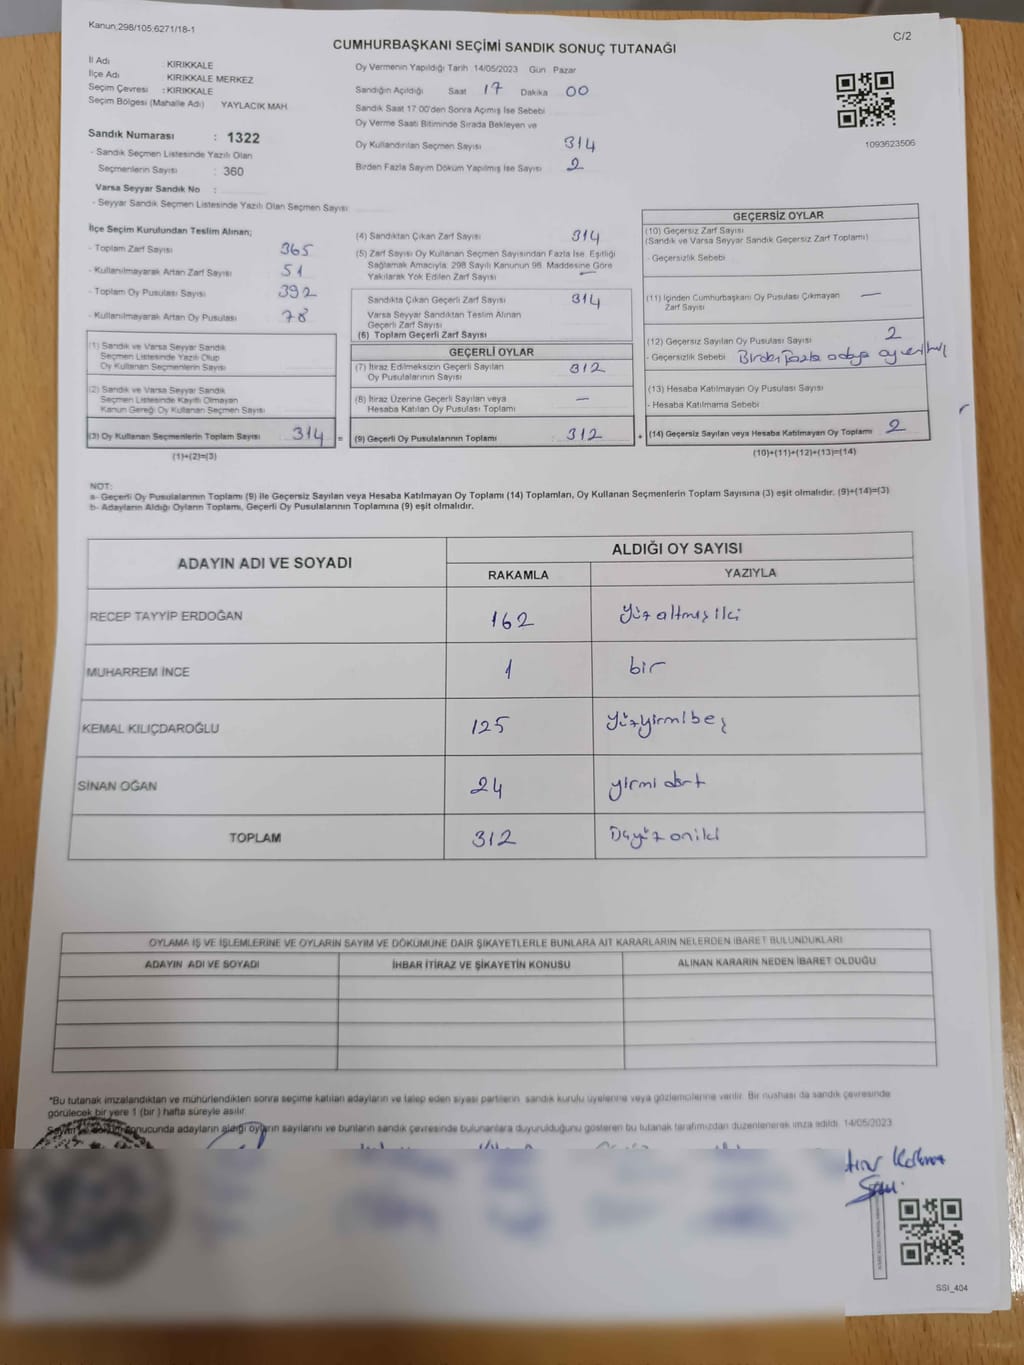 Kanun;298/105;6271/18-1
C/2
CUMHURBAŞKANI SEÇİMİ SANDIK SONUÇ TUTANAĞI
İl Adı : KIRIKKALE
İlçe Adı : KIRIKKALE MERKEZ
Seçim Çevresi : KIRIKKALE
Seçim Bölgesi (Mahalle Adı) YAYLACIK MAH.
Sandık Numarası : 1322
- Sandık Seçmen Listesinde Yazılı Olan
Seçmenlerin Sayısı : 360
Varsa Seyyar Sandık No :
- Seyyar Sandık Seçmen Listesinde Yazılı Olan Seçmen Sayısı
Oy Vermenin Yapıldığı Tarih 14/05/2023 Gün Pazar
Sandığın Açıldığı Saat 17 Dakika 00
Sandık Saat 17:00'den Sonra Açımış İse Sebebi
Oy Verme Saati Bitiminde Sırada Bekleyen ve
Oy Kullandırılan Seçmen Sayısı 314
Birden Fazla Sayım Döküm Yapılmış İse Sayısı 2
1093623506
İlçe Seçim Kurulundan Teslim Alınan;
- Toplam Zarf Sayısı 365
- Kullanılmayarak Artan Zarf Sayısı 51
- Toplam Oy Pusulası Sayısı 392
- Kullanılmayarak Artan Oy Pusulası 78
(1) Sandık ve Varsa Seyyar Sandık
Seçmen Listesinde Yazılı Olup
Oy Kullanan Seçmenlerin Sayısı
(2) Sandık ve Varsa Seyyar Sandık
Seçmen Listesinde Kayıtlı Olmayan
Kanun Gereği Oy Kullanan Seçmen Sayısı
(3) Oy Kullanan Seçmenlerin Toplam Sayısı 314 =
(1)+(2)=(3)
(4) Sandıktan Çıkan Zarf Sayısı 314
(5) Zarf Sayısı Oy Kullanan Seçmen Sayısından Fazla İse, Eşitliği
Sağlamak Amacıyla, 298 Sayılı Kanunun 98. Maddesine Göre
Yakılarak Yok Edilen Zarf Sayısı —
Sandıkta Çıkan Geçerli Zarf Sayısı 314
Varsa Seyyar Sandıktan Teslim Alınan
Geçerli Zarf Sayısı
(6) Toplam Geçerli Zarf Sayısı
GEÇERLİ OYLAR
(7) İtiraz Edilmeksizin Geçerli Sayılan
Oy Pusulalarının Sayısı 312
(8) İtiraz Üzerine Geçerli Sayılan veya
Hesaba Katılan Oy Pusulası Toplamı —
(9) Geçerli Oy Pusulalarının Toplamı 312 +
GEÇERSİZ OYLAR
(10) Geçersiz Zarf Sayısı
(Sandık ve Varsa Seyyar Sandık Geçersiz Zarf Toplamı)
- Geçersizlik Sebebi
(11) İçinden Cumhurbaşkanı Oy Pusulası Çıkmayan —
Zarf Sayısı
(12) Geçersiz Sayılan Oy Pusulası Sayısı 2
- Geçersizlik Sebebi Birden fazla adaya oy
(13) Hesaba Katılmayan Oy Pusulası Sayısı
- Hesaba Katılmama Sebebi
(14) Geçersiz Sayılan veya Hesaba Katılmayan Oy Toplamı 2
(10)+(11)+(12)+(13)=(14)
NOT:
a- Geçerli Oy Pusulalarının Toplamı (9) ile Geçersiz Sayılan veya Hesaba Katılmayan Oy Toplamı (14) Toplamları, Oy Kullanan Seçmenlerin Toplam Sayısına (3) eşit olmalıdır. (9)+(14)=(3)
b- Adayların Aldığı Oyların Toplamı, Geçerli Oy Pusulalarının Toplamına (9) eşit olmalıdır.
ADAYIN ADI VE SOYADI
ALDIĞI OY SAYISI
RAKAMLA YAZIYLA
RECEP TAYYİP ERDOĞAN 162 yüzaltmışiki
MUHARREM İNCE 1 bir
KEMAL KILIÇDAROĞLU 125 yüzyirmibeş
SİNAN OĞAN 24 yirmi dört
TOPLAM 312 Üçyüz oniki
OYLAMA İŞ VE İŞLEMLERİNE VE OYLARIN SAYIM VE DÖKÜMÜNE DAİR ŞİKAYETLERLE BUNLARA AİT KARARLARIN NELERDEN İBARET BULUNDUKLARI
ADAYIN ADI VE SOYADI İHBAR İTİRAZ VE ŞİKAYETİN KONUSU ALINAN KARARIN NEDEN İBARET OLDUĞU
*Bu tutanak imzalandıktan ve mühürlendikten sonra seçime katılan adayların ve talep eden siyasi partilerin sandık kurulu üyelerine veya gözlemcilerine verilir. Bir nushası da sandık çevresinde
görülecek bir yere 1 (bir ) hafta süreyle asılır.
adayların aldığı oyların sayılarını ve bunların sandık çevresinde bulunanlara duyurulduğunu gösteren bu tutanak tarafımızdan düzenlenerek imza edildi. 14/05/2023
SSI_404